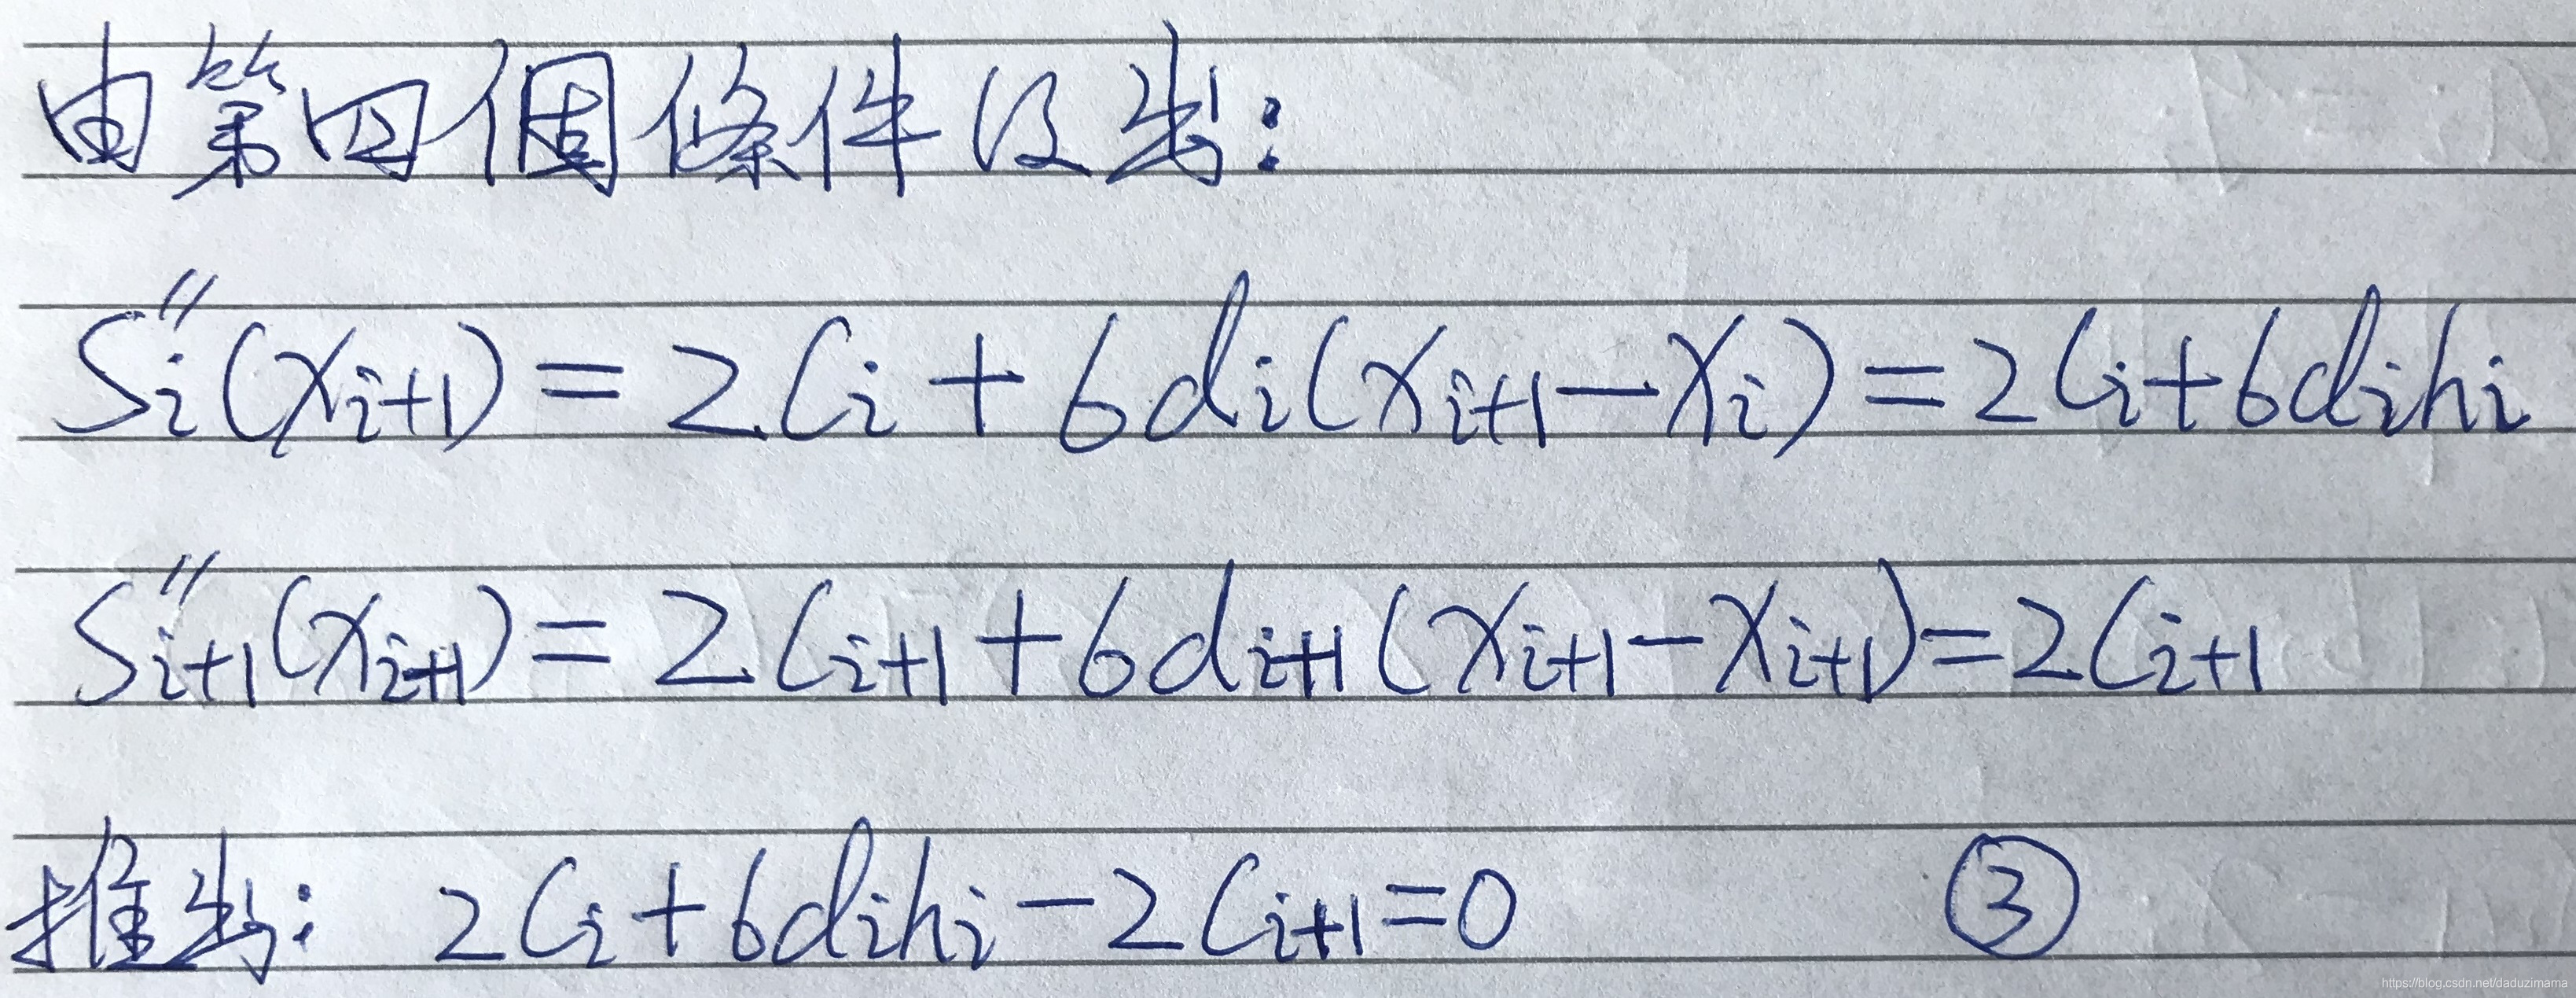 由第四個條件得出:
S''ᵢ(xᵢ₊₁) = 2Cᵢ + 6dᵢ(xᵢ₊₁ − xᵢ) = 2Cᵢ + 6dᵢhᵢ
S''ᵢ₊₁(xᵢ₊₁) = 2Cᵢ₊₁ + 6dᵢ₊₁(xᵢ₊₁ − xᵢ₊₁) = 2Cᵢ₊₁
推出: 2Cᵢ + 6dᵢhᵢ − 2Cᵢ₊₁ = 0 ③
https://blog.csdn.net/daduzimama